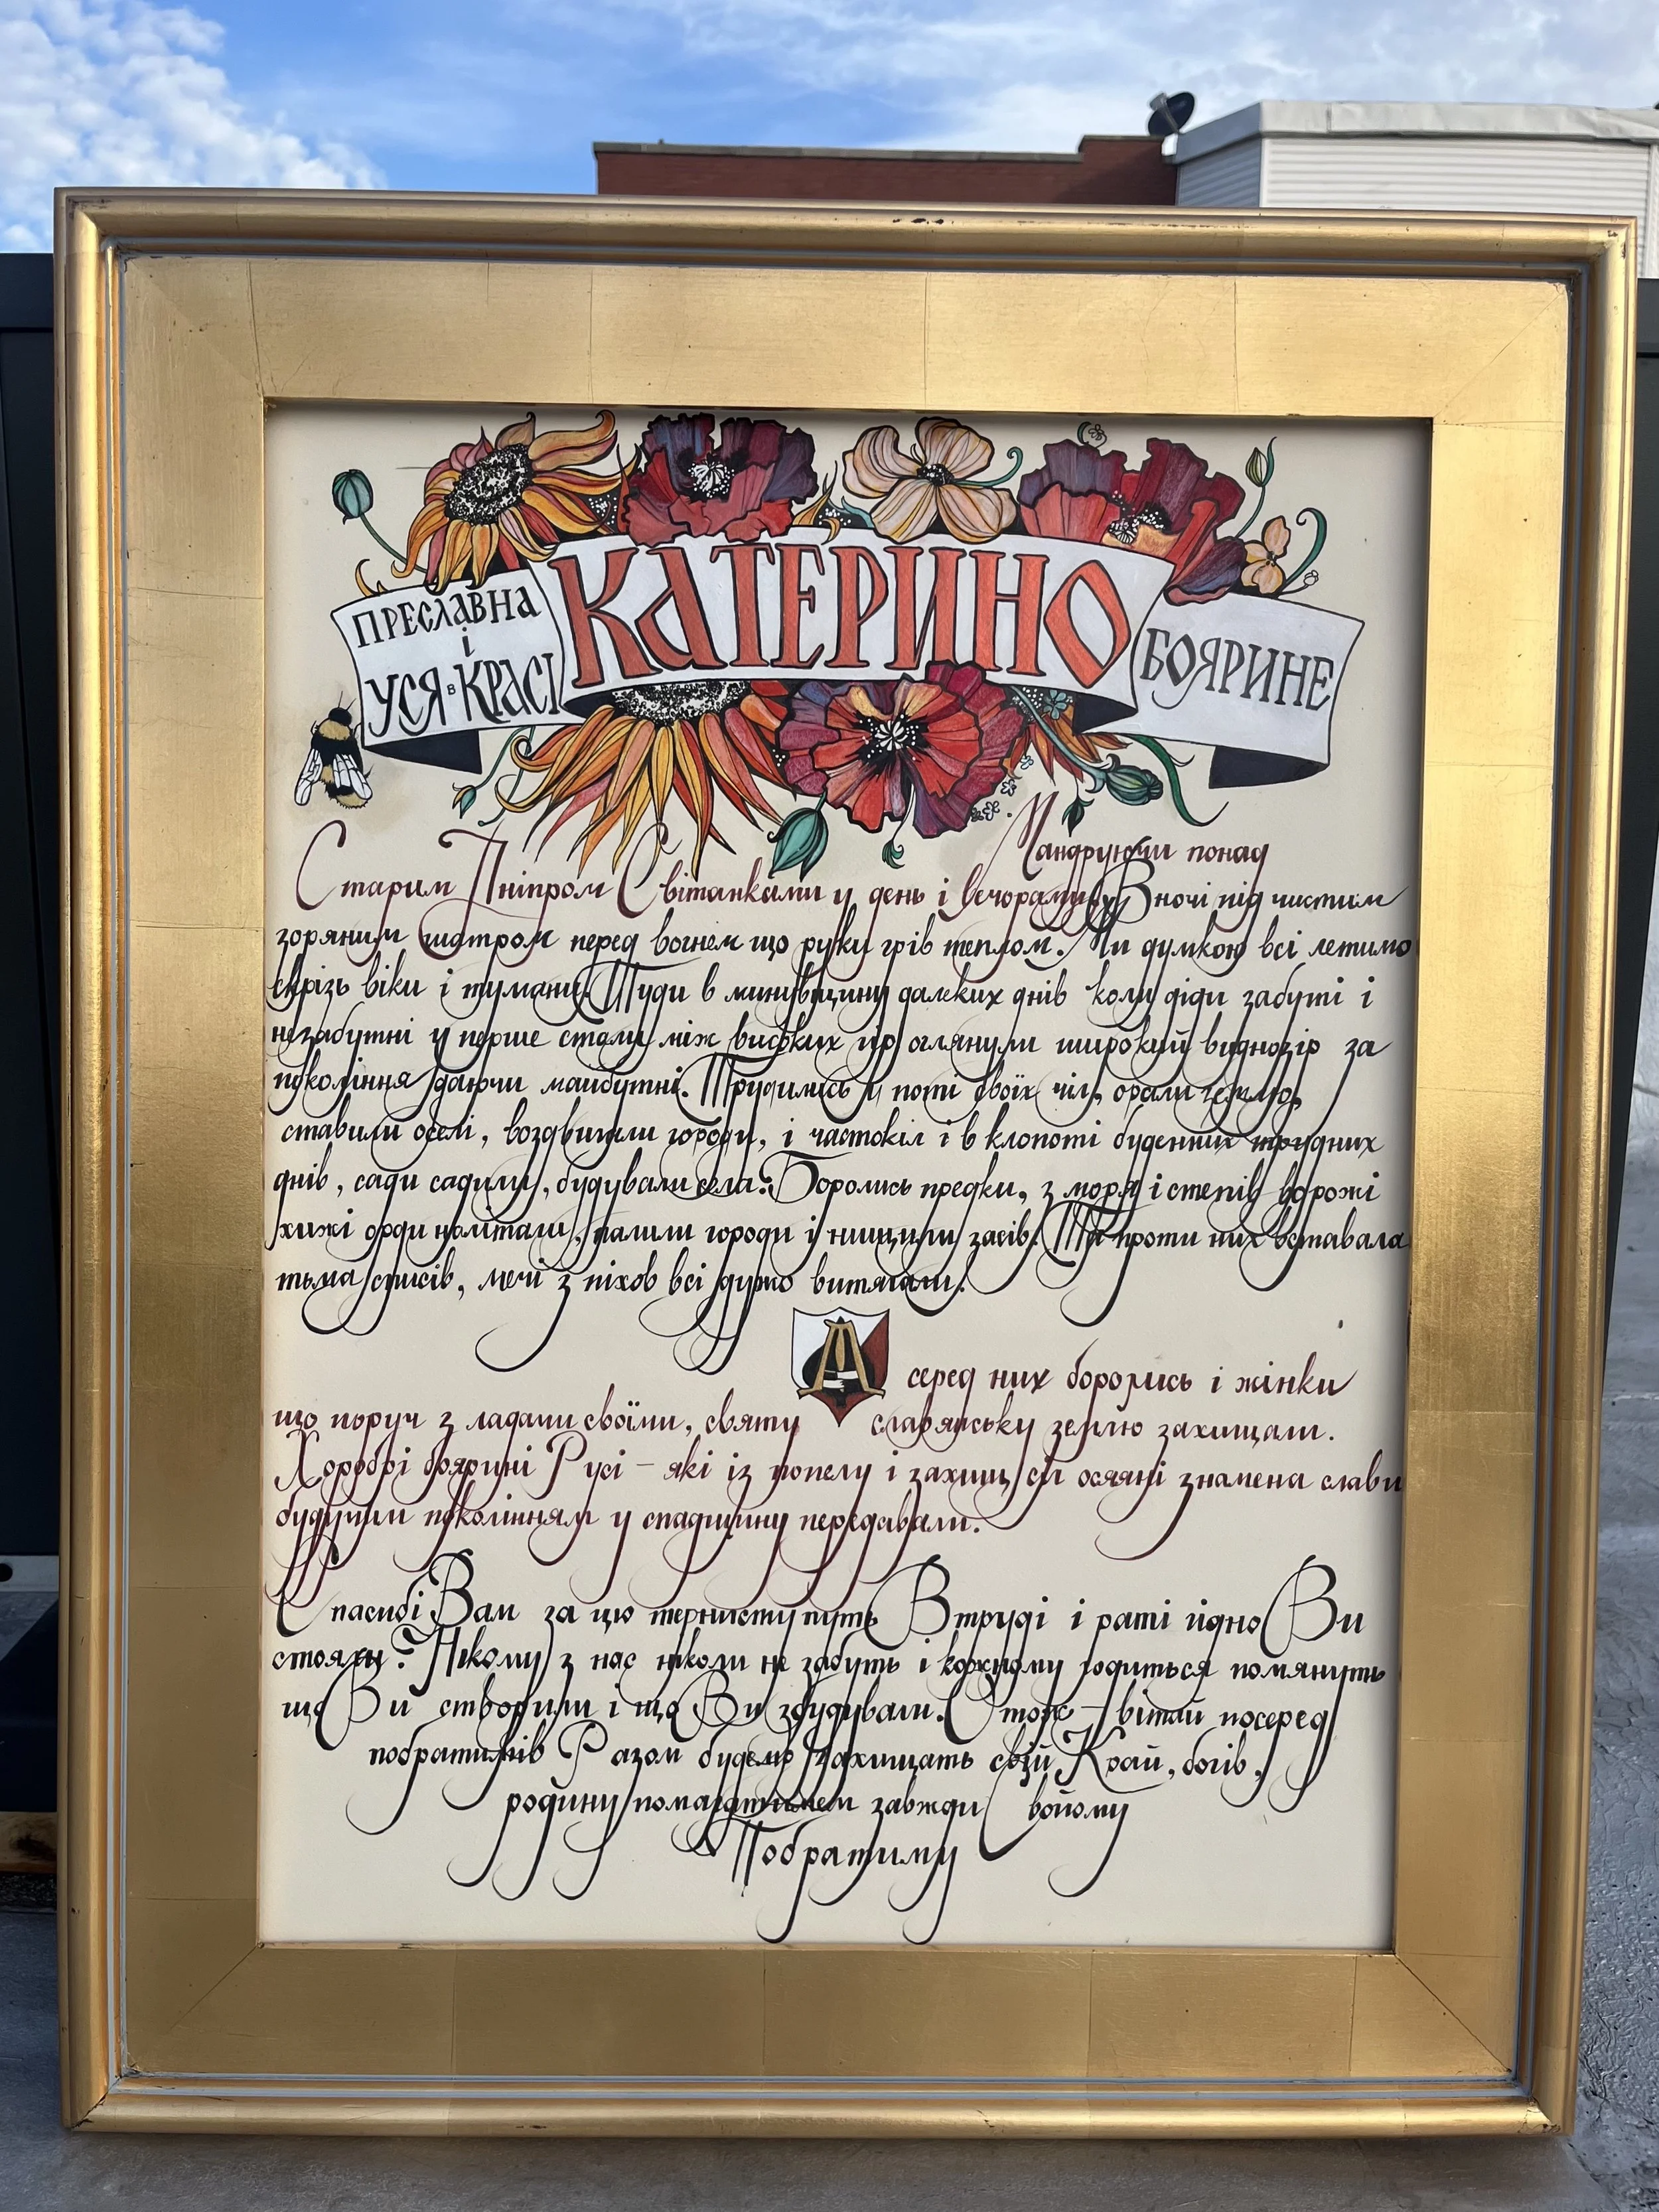 ПРЕСЛАВНА
і
УСЯ в КРАСІ
КАТЕРИНО
БОЯРИНЕ
Мандруючи понад
Старим Дніпром Світанками у день і Вечорами, Вночі під чистим
зоряним шатром перед вогнем що руки грів теплом. Ми думкою всі летимо
скрізь віки і тумани. Туди в минувщину далеких днів коли діди забуті і
незабутні у перше стали між високих гір оглянули широкий виднозір за
покоління дбаючи майбутні. Трудились у поті своїх чіл, орали землю,
ставили оселі, воздвигли городи, і частокіл і в клопоті буденних трудних
днів, сади садили, будували села. Боролись предки, з моря і степів ворожі
хижі орди налітали, палили городи і нищили засів. Та проти них вставала
тьма списів, мечі з піхов всі дужо витягали.
А серед них боролись і жінки
що поруч з ладами своїми, святу славянську землю захищали.
Хоробрі боярині Русі – які із попелу і захищ сіл осяяні знамена слави
будучим поколінням у спадщину передавали.
Спасибі Вам за цю тернисту путь В труді і раті гідно Ви
стояли. Нікому з нас ніколи не забуть і кожному годиться помянуть
що Ви створили і що Ви збудували. Отож – вітай посеред
побратимів Разом будемо захищать свій Край, богів,
родину помагатимем завжди Свойому
Побратиму